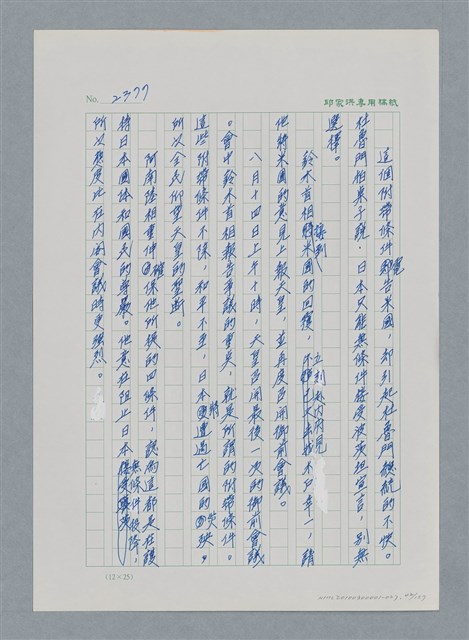 No. 2377
邱家洪專用稿紙
這個附帶條件電告米國，卻引起杜魯門總統的不快。
杜魯門拍桌子說，日本只能無條件接受波茨坦宣言，別無
選擇。
鈴木首相接到米國的回覆，立刻赴內府見木戶幸一，請
他將米國的意見上報天皇，並再度召開御前會議。
八月十四日上午十時，天皇召開最後一次的御前會議
。會中鈴木首相報告爭議的重點，就是所謂的附帶條件。
這些附帶條件不保，和平不至，日本將遭遇亡國的災殃，
所以全民仰望天皇的聖斷。
阿南陸相重伸確保他所提的四條件，認為這都是在護
持日本國體和國民的尊嚴。他意在阻止日本無條件投降，
所以態度比在內閣會議時更強烈。
(12×25)